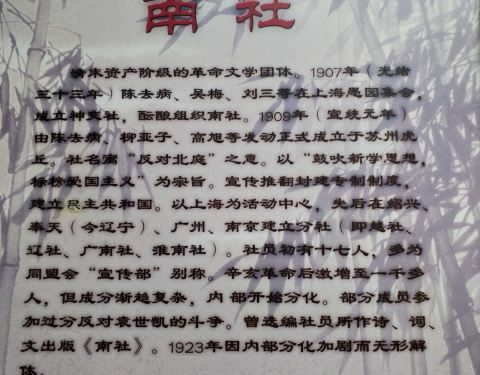 南社
清末资产阶级的革命文学团体。1907年（光绪
三十三年）陈去病、吴梅、刘三等在上海愚园集会，
成立神交社，酝酿组织南社。1909年（宣统元年）
由陈去病、柳亚子、高旭等发动正式成立于苏州虎
丘。社名寓“反对北庭”之意。以“鼓吹新学思想，
标榜爱国主义”为宗旨。宣传推翻封建专制制度，
建立民主共和国。以上海为活动中心，先后在绍兴、
奉天（今辽宁）、广州、南京建立分社（即越社、
辽社、广南社、淮南社）。社员初有十七人，多为
同盟会“宣传部”别称。辛亥革命后激增至一千多
人，但成分渐趋复杂，内部开始分化。部分成员参
加过分反对袁世凯的斗争。曾选编社员所作诗、词、
文出版《南社》。1923年因内部分化加剧而无形解
体。